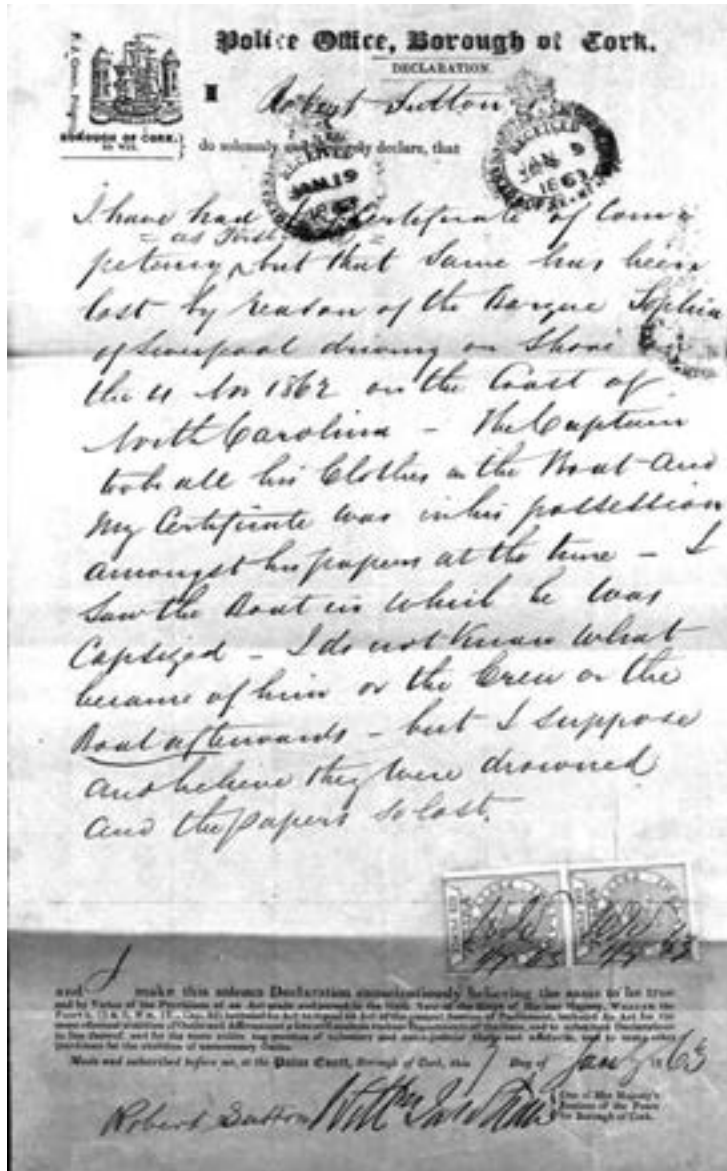 Police Office, Borough of Cork.
DECLARATION.
BOROUGH OF CORK.
I Robert Sutton
do solemnly and sincerely declare, that
RECEIVED
JAN 19
1863
RECEIVED
JAN 9
1863
I have had a Certificate of Com
= as First =
petency, but that same has been
lost by reason of the Barque Sophia
of Liverpool driving on Shore
the 4 Nov 1862 on the Coast of
North Carolina - The Captain
took all his Clothes in the Boat and
My Certificate was in his possession
amongst his papers at the time - I
Saw the Boat in which he was
Capsized - I do not Know What
became of him or the Crew or the
Boat afterwards - but I suppose
and believe they were drowned
and the papers so lost.
and I make this solemn Declaration conscientiously believing the same to be true
and by Virtue of the Provisions of an Act made and passed in the Year of the Reign of His late Majesty, WILLIAM the
Made and subscribed before me, at the Police Court, Borough of Cork, this 7 Day of Jany 1863
Robert Sutton
One of Her Majesty's
Justices of the Peace
for Borough of Cork.